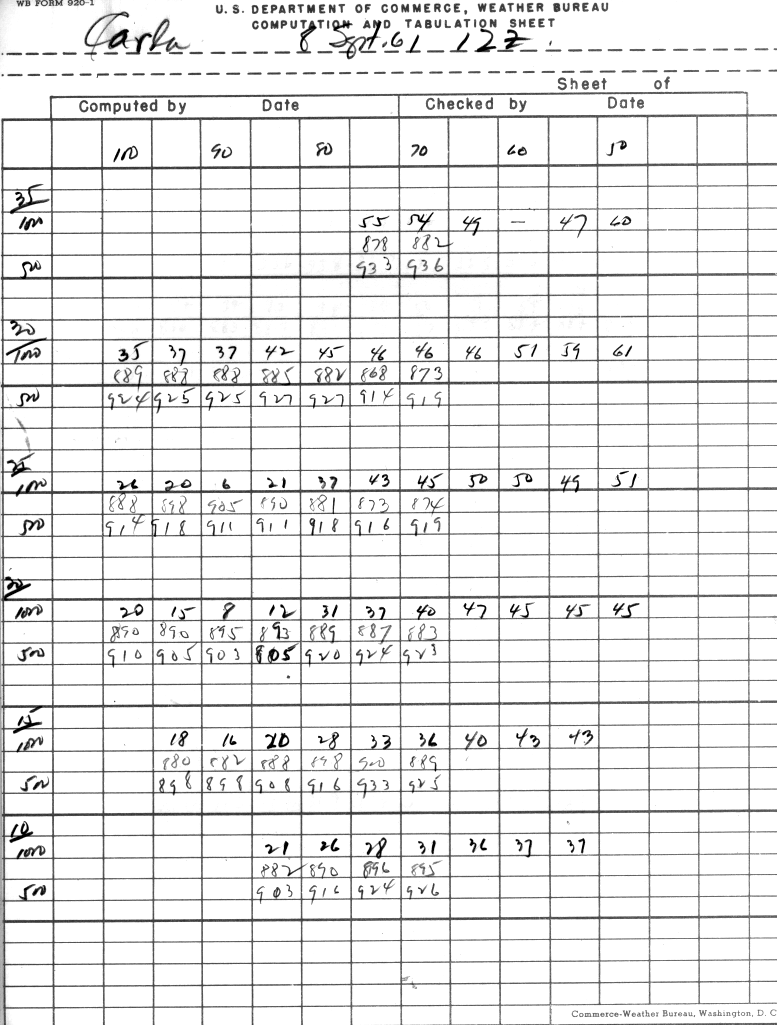 WB FORM 920-1
U. S. DEPARTMENT OF COMMERCE, WEATHER BUREAU
COMPUTATION AND TABULATION SHEET
Carla 8 Sept. 61 12Z.
Sheet of
Computed by Date Checked by Date
100 90 80 70 60 50
35
1000 55 54 49 — 47 60
878 882
500 933 936
30
1000 35 37 37 42 45 46 46 46 51 59 61
889 888 888 885 882 868 873
500 924 925 925 927 927 914 919
25
1000 26 20 6 21 37 43 45 50 50 49 51
888 898 905 890 881 873 874
500 914 918 911 911 918 916 919
20
1000 20 15 8 12 31 37 40 47 45 45 45
890 890 895 893 889 887 883
500 910 905 903 905 920 924 923
15
1000 18 16 20 28 33 36 40 43 43
880 882 888 898 900 889
500 898 898 908 916 933 925
10
1000 21 26 28 31 36 37 37
882 890 896 895
500 903 916 924 926
Commerce-Weather Bureau, Washington, D. C